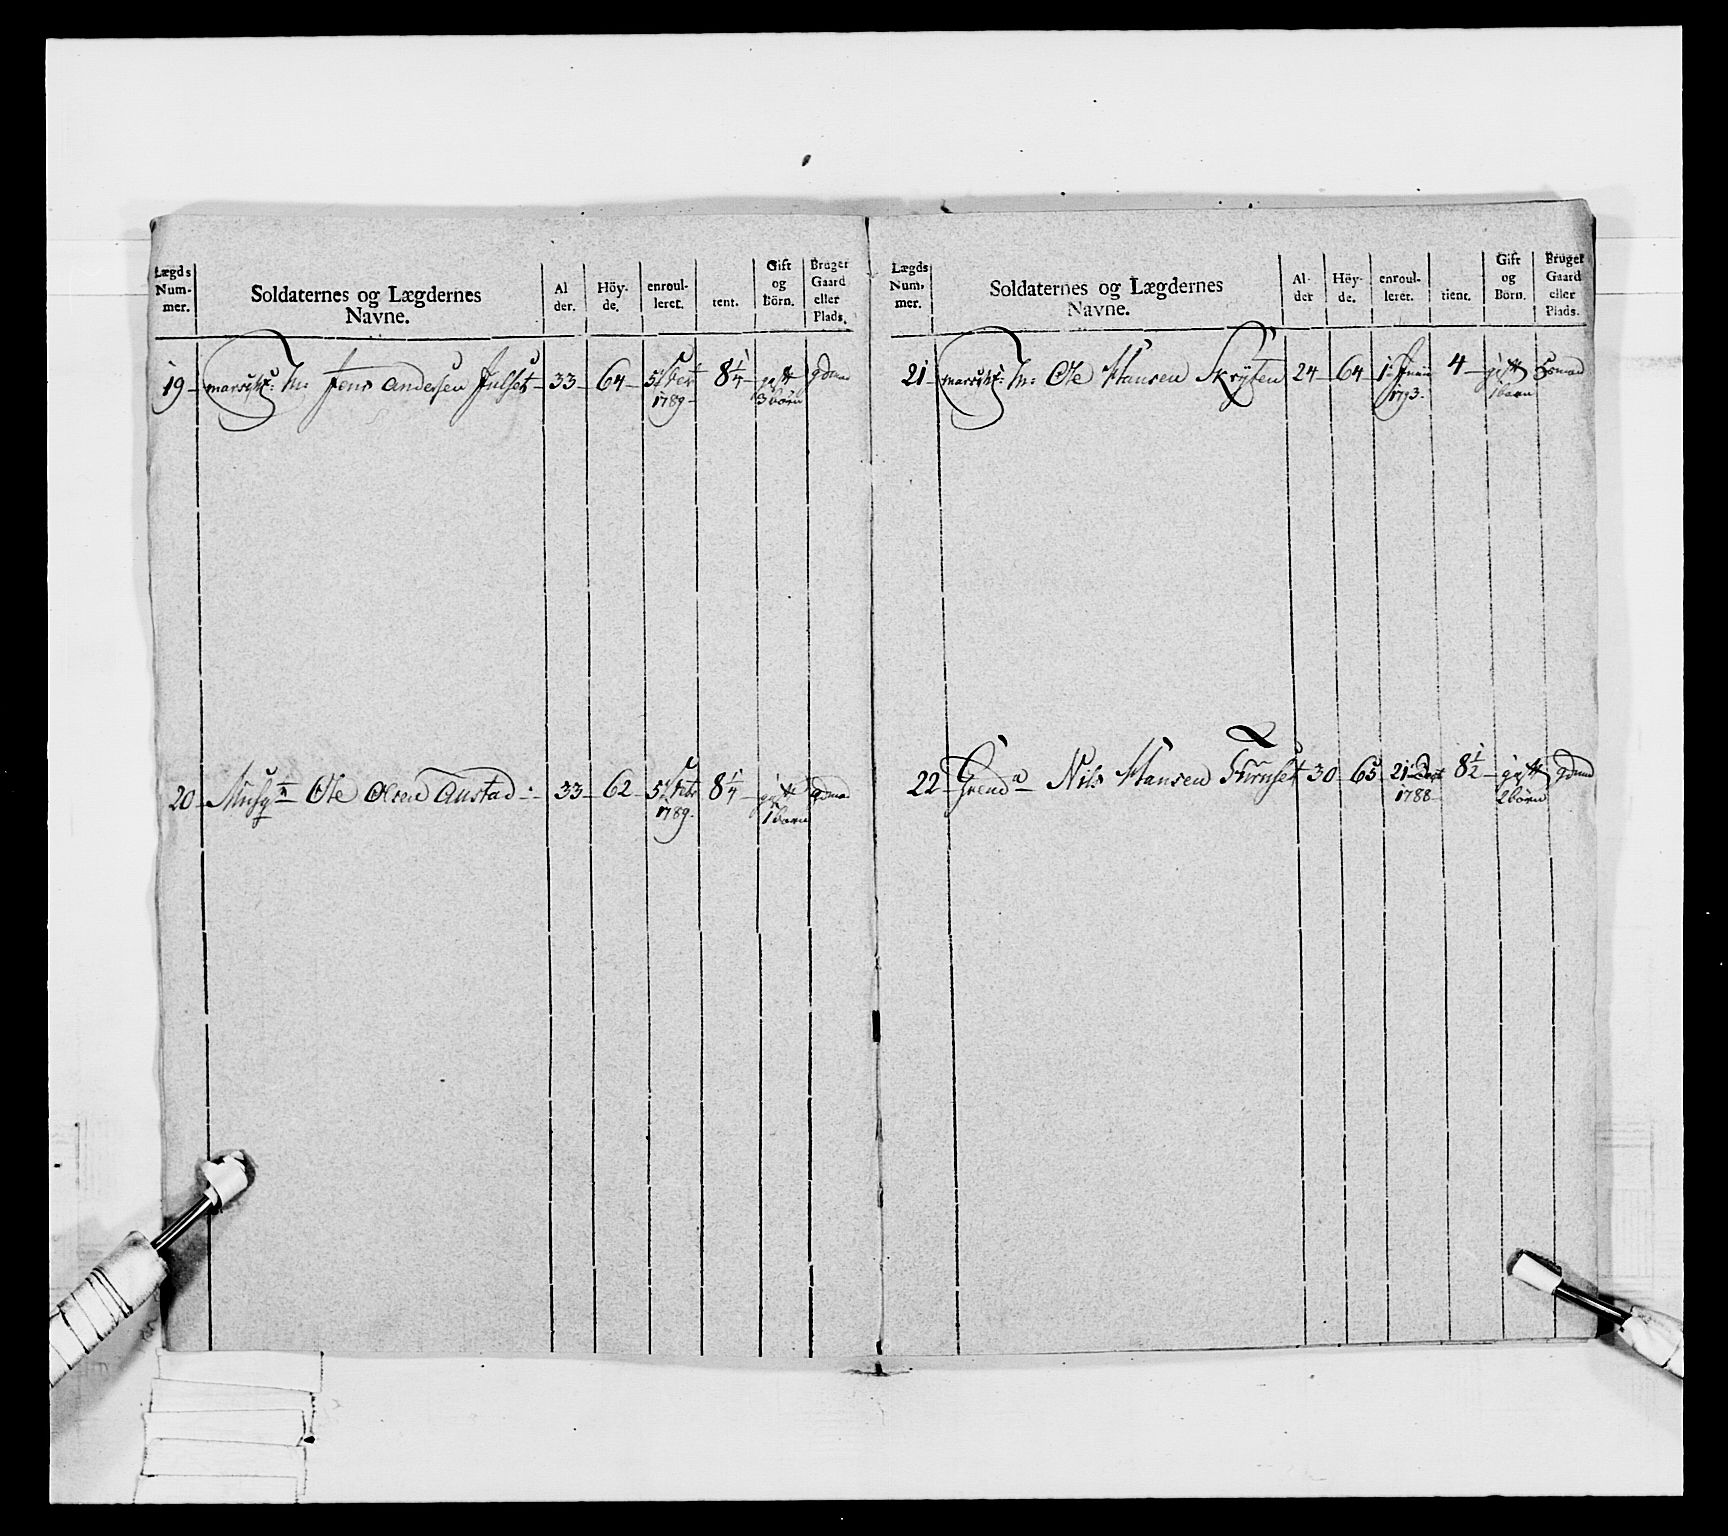 Lægds Num- mer. Soldaternes og Lægdernes Navne. Al der. Höy- de. enroul- leret. tient. Gift og Börn. Bruger Gaard eller Plads.
19 Jens Andersen Julset 33 64 5 1789 8 1/4 gift 3 börn
20 Musq Ole Olsen Austad 33 62 5 1789 8 1/4 gift 1 barn
Lægds Num, mer. Soldaternes og Lægdernes Navne. Al- der Höy- de. enroul- leret. tient. Gift og Börn. Bruger Gaard eller Plads.
21 Ole Hansen Skrÿten 24 64 1 Junii 1793 4 gift 1 barn
22 Grend Nils Hansen 30 65 21 1788 8 1/2 gift 2 börn